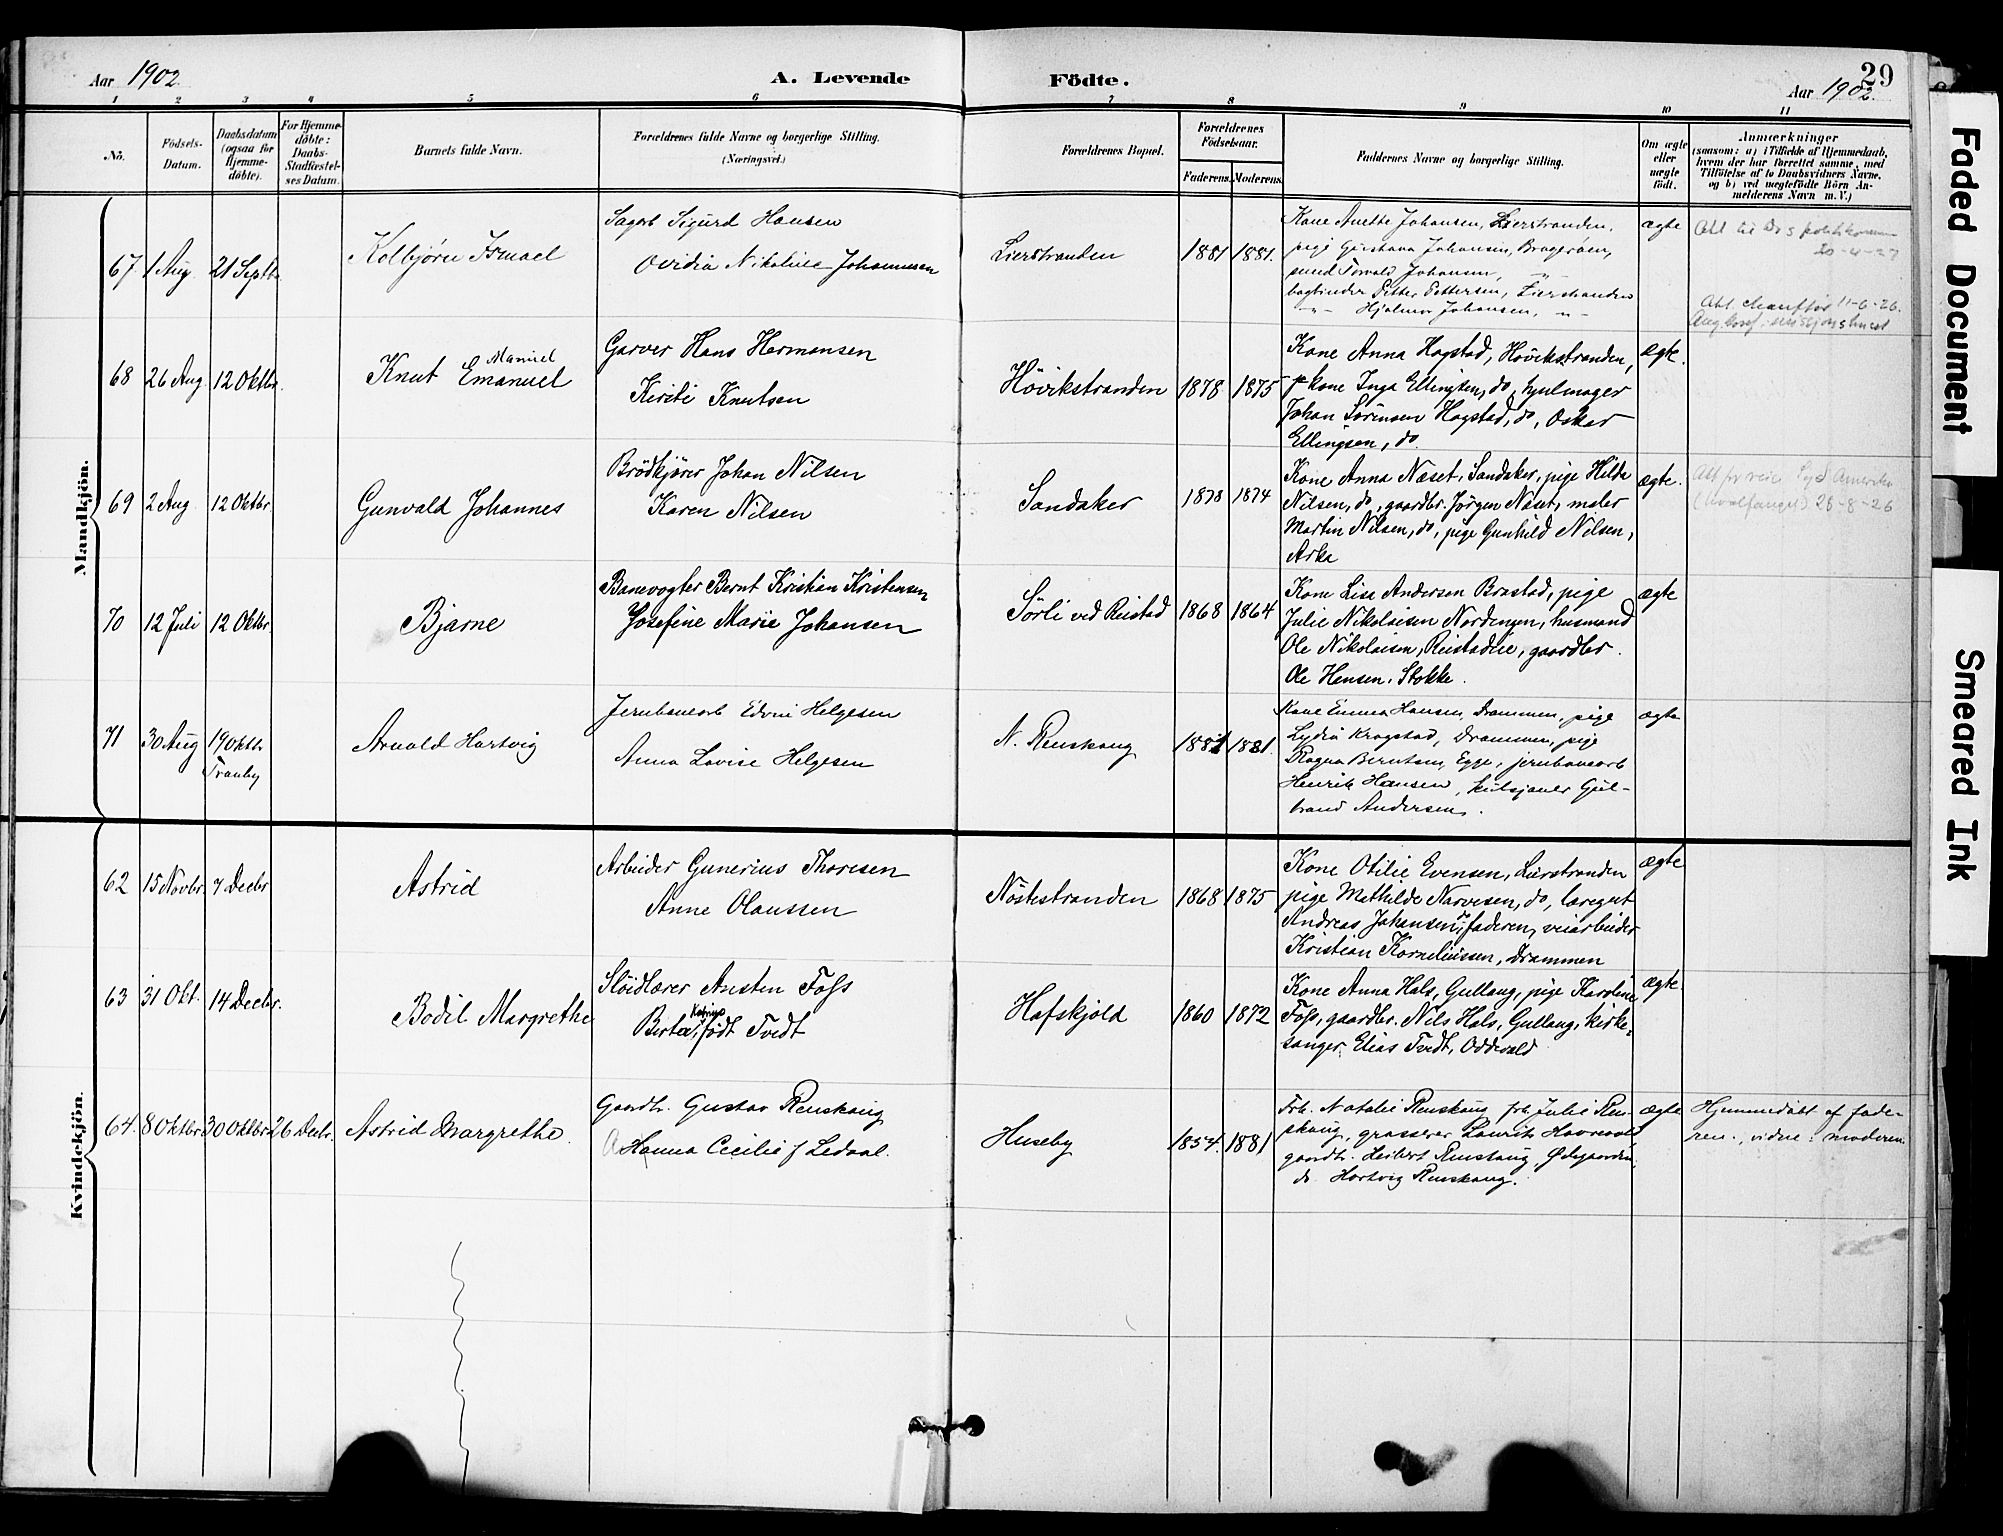 Aar 1902.
A. Levende Födte.
29
Aar 1902.
1 2 3 4 5 6 7 8 9 10 11
No.
Födsels-
Datum.
Daabsdatum
(ogsaa for
Hjemme-
döbte).
For Hjemme-
döbte:
Daabs-
Stadfæstel-
ses Datum.
Barnets fulde Navn.
Forældrenes fulde Navne og borgerlige Stilling.
(Næringsvei.)
Forældrenes Bopæl.
Forældrenes
Födselsaar.
Faderens. Moderens.
Faddernes Navne og borgerlige Stilling.
Om ægte
eller
uægte
födt.
Anmærkninger
(saasom: a) i Tilfælde af Hjemmedaab,
hvem der har forrettet samme, med
Tilföielse af to Daabsvidners Navne,
og b) ved uægtefödte Börn An-
melderens Navn m. V.)
Mandkjön.
67 1 Aug. 21 Septb.
Kolbjörn Ismael
Sagarb Sigurd Hansen
Ovidia Nikoline Johannesen
Lierstranden
1881 1881.
Kone Anette Johansen, Lierstranden,
pige Gustava Johansen, Bragerøen,
svend Torvald Johansen, -"-
bogbinder Petter Pettersen, Lierstranden
-"- Hjalmar Johansen, -"-
ægte
20-4-27
11-6-26.
68 26 Aug. 12 Oktbr.
Knut Emanuel
Manuel
Garver Hans Hermansen
Kirsti Knutsen
Hövikstranden
1878 1875
Kone Anna Hagstad, Hövikstranden,
kone Inga Ellingsen, do, hjulmager
Johan Sörensen Hagstad, do, Oskar
Ellingsen, do
ægte.
69 2 Aug 12 Oktbr.
Gunvald Johannes
Brödkjörer Johan Nilsen
Karen Nilsen
Sandaker
1878 1874
Kone Anna Næset, Sandaker, pige Hilda
Nilsen, do, gaardbr. Jörgen Næset, maler
Martin Nilsen, do, pige Gunhild Nilsen,
Arka
ægte.
Att for reise Syd Amerika
(hvalfanget) 26-8-26
70 12 Juli 12 Oktbr.
Bjarne
Banevogter Bernt Kristian Kristensen
Josefine Marie Johansen
Sörli ved Reistad
1868 1864
Kone Lise Andersen Brastad, pige
Julie Nikolaisen Nordengen, husmand
Ole Nikolaisen, Reistadlie, gaardbr.
Ole Hansen, Stokke.
ægte
71 30 Aug 19 Oktbr
Tranby
Arnold Hartvig
Jernbanearb Edvin Helgesen
Anna Lovise Helgesen
N. Renskaug
1881 1881.
Kone Emma Hansen, Drammen, pige
Lydia Kragstad, Drammen, pige
Ragna Berntsen, Egge, jernbanearb
Henrik Hansen,
brand Andersen.
ægte
Kvindekjön.
62 15 Novbr. 7 Decbr
Astrid
Arbeider Gunerius Thoresen
Anne Olaussen
Nöstestranden
1868 1875
Kone Otilie Evensen, Lierstranden
pige Mathilde Narvesen, do, læregut
Andreas Johansen, do, faderen, veiarbeider
Kristian Korneliussen, Drammen
ægte
63 31 Okt. 14 Decbr.
Bodil Margrethe
Slöidlærer Austen Foss
Berta, födt Tvedt
Hafskjold
1860 1872
Kone Anna Hals, Gullaug, pige Karoline
Foss, gaardbr. Nils Hals, Gullaug, kirke-
sanger Elias Tvedt, Oddevald
ægte.
64. 8 Oktbr 30 Oktbr 26 Decbr.
Astrid Margrethe.
Gaardbr. Gustav Renskaug
Hanna Cecilie f Ledaal.
Huseby
1854. 1881
Frk. Natalie Renskaug frk Julie Ren-
skaug, grosserer Laurits
gaardbr. Renskaug, Ødegaarden,
do Hartvig Renskaug.
ægte
Hjemmedöbt af fade-
ren., vidne: moderen
Faded Document
Smeared Ink